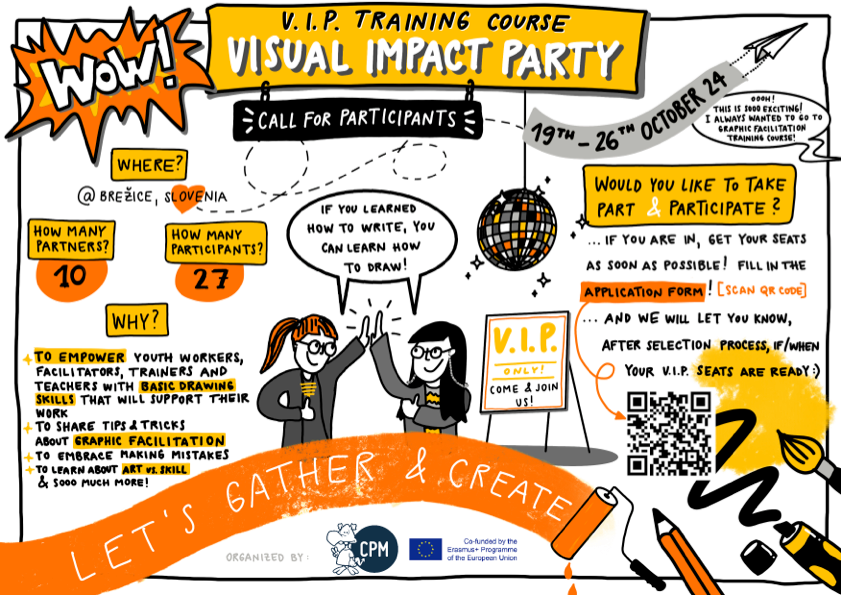 WOW!
V.I.P. TRAINING COURSE
VISUAL IMPACT PARTY
CALL FOR PARTICIPANTS
19TH - 26TH OCTOBER 24
OOOH!
THIS IS SOOO EXCITING!
I ALWAYS WANTED TO GO TO
GRAPHIC FACILITATION
TRAINING COURSE!
WHERE?
@ BREŽICE, SLOVENIA
HOW MANY
PARTNERS?
10
HOW MANY
PARTICIPANTS?
27
WHY?
TO EMPOWER YOUTH WORKERS,
FACILITATORS, TRAINERS AND
TEACHERS WITH BASIC DRAWING
SKILLS THAT WILL SUPPORT THEIR
WORK
TO SHARE TIPS & TRICKS
ABOUT GRAPHIC FACILITATION
TO EMBRACE MAKING MISTAKES
TO LEARN ABOUT ART vs. SKILL
& SOOO MUCH MORE!
IF YOU LEARNED
HOW TO WRITE, YOU
CAN LEARN HOW
TO DRAW!
V.I.P.
ONLY!
COME & JOIN
US!
WOULD YOU LIKE TO TAKE
PART & PARTICIPATE?
... IF YOU ARE IN, GET YOUR SEATS
AS SOON AS POSSIBLE! FILL IN THE
APPLICATION FORM! [SCAN QR CODE]
... AND WE WILL LET YOU KNOW,
AFTER SELECTION PROCESS, IF/WHEN
YOUR V.I.P. SEATS ARE READY :)
LET'S GATHER & CREATE
ORGANIZED BY:
CPM
Co-funded by the
Erasmus+ Programme
of the European Union